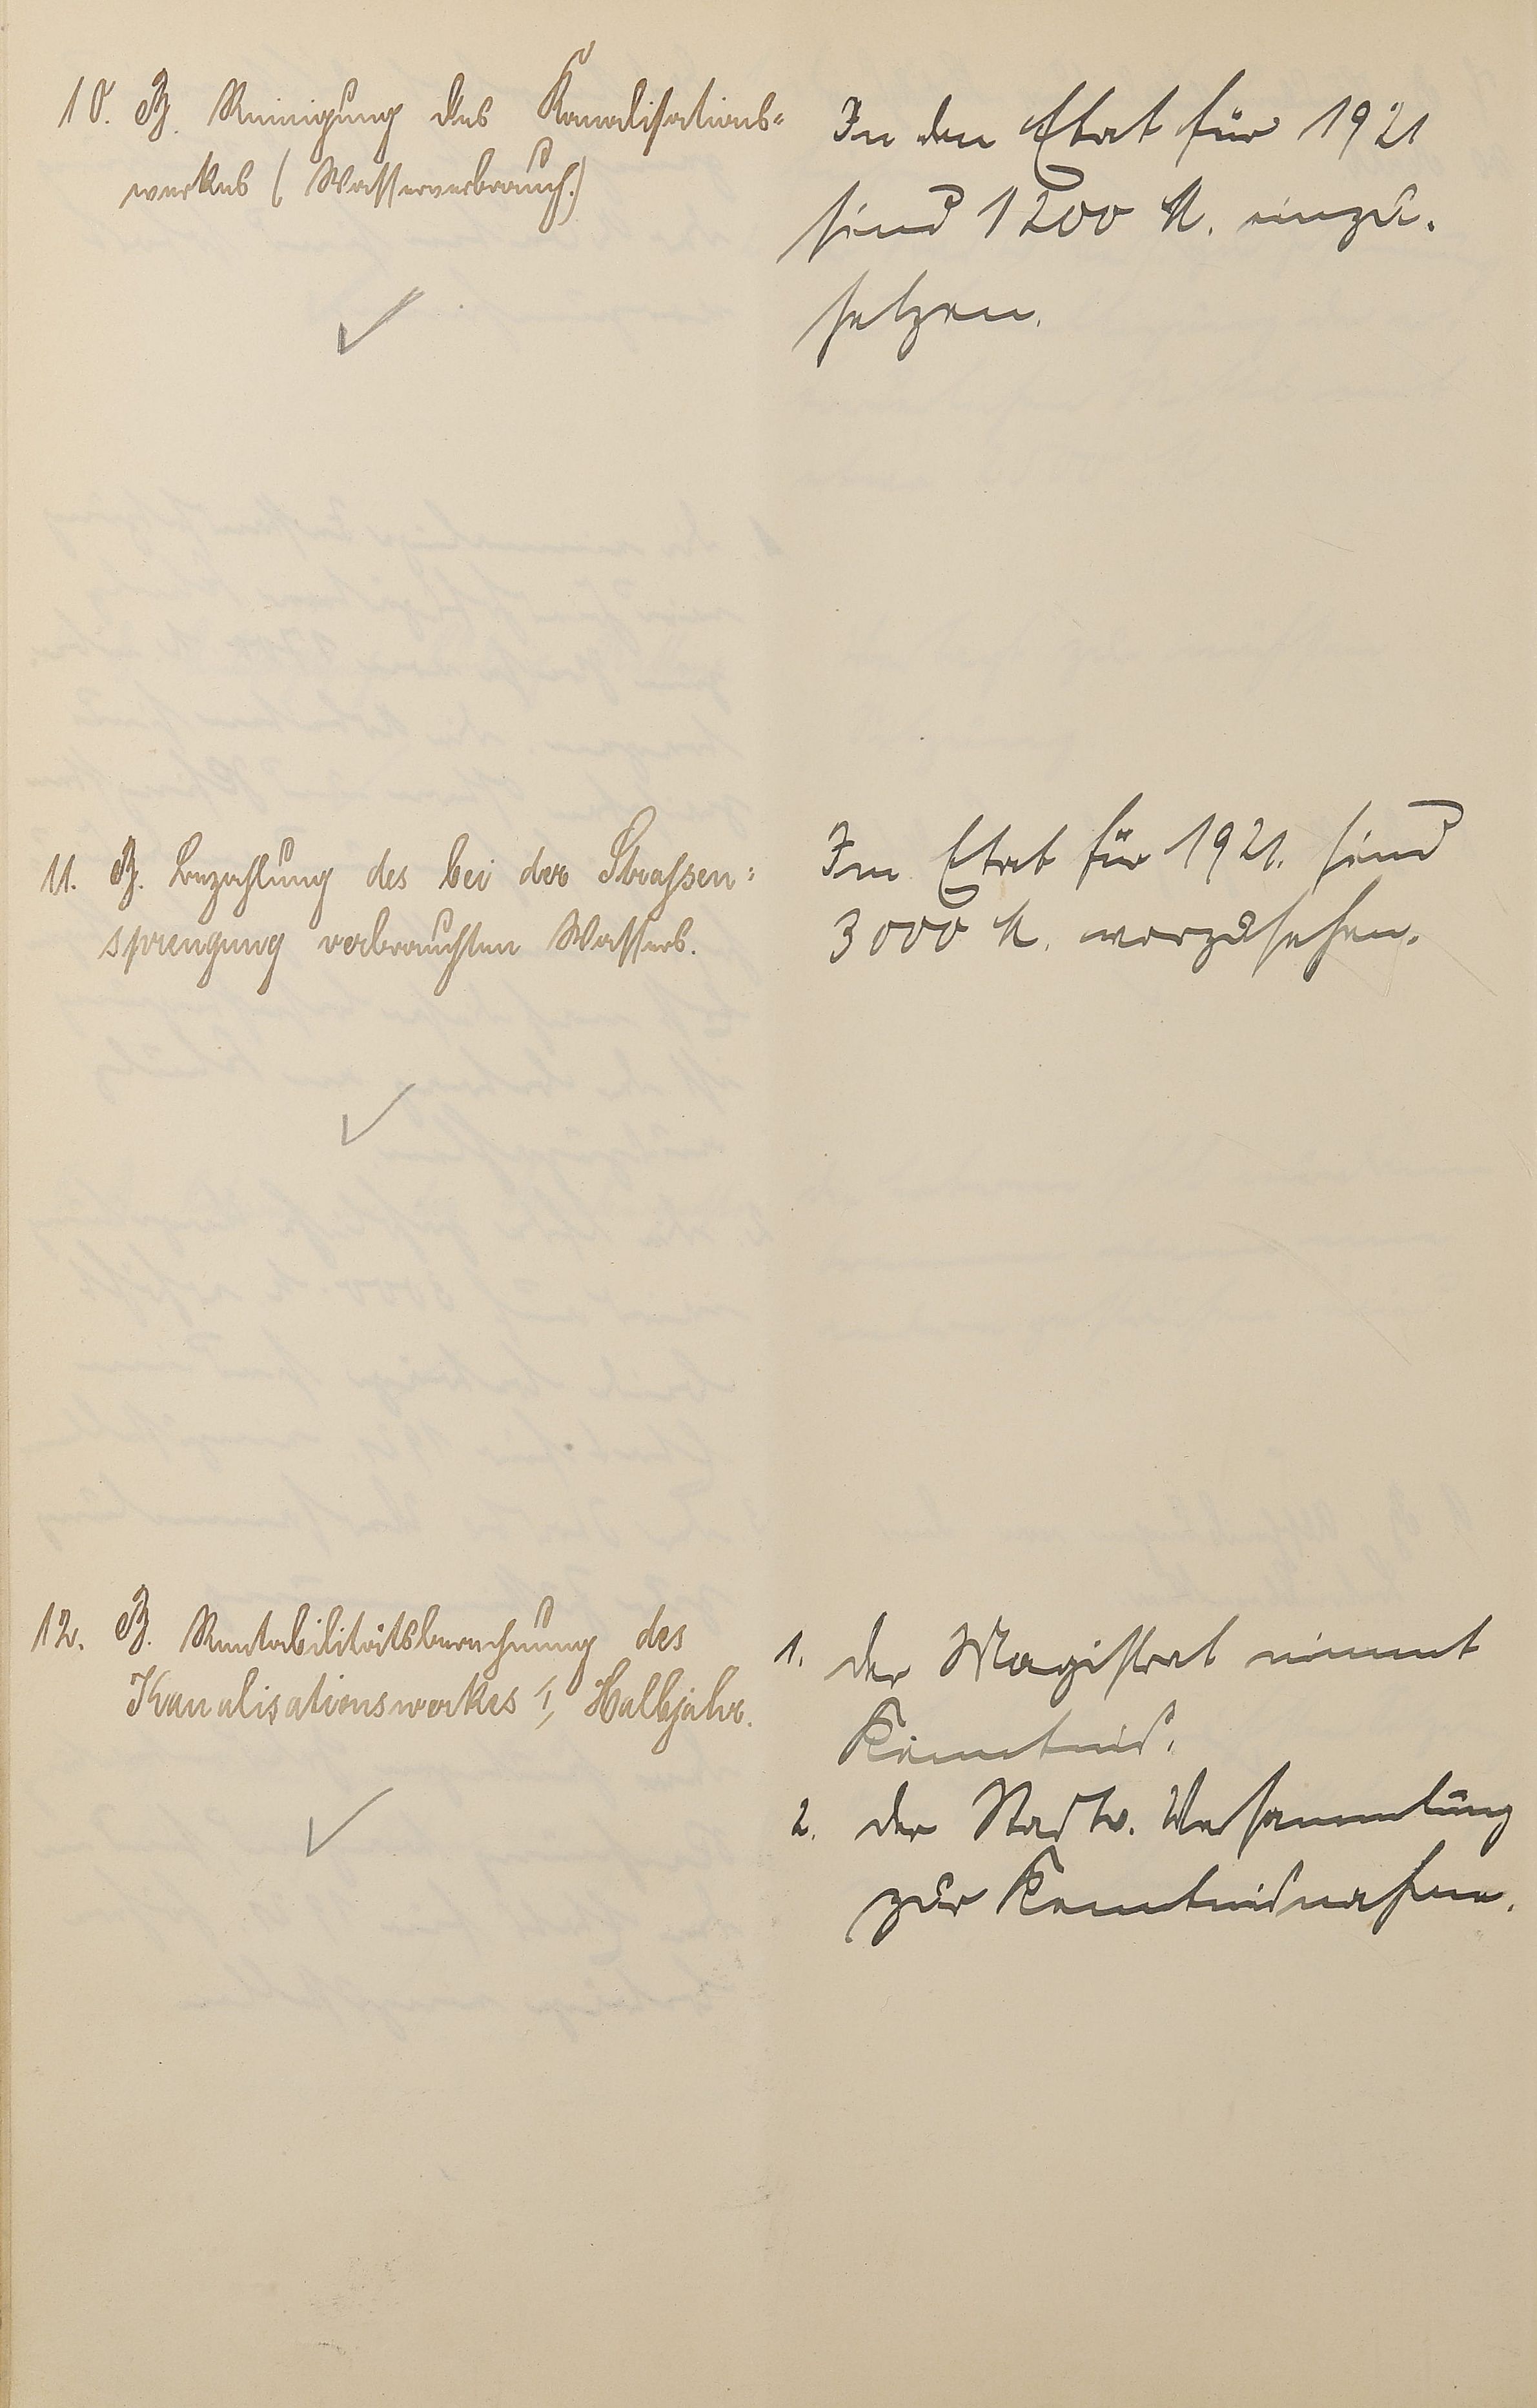 10. B. Reinigung des Kanalisations-
werkes (Wasserverbrauch.)
In den Etat für 1921
sind 1200 M. einzu-
setzen.
11. B. Bezahlung des bei der Strassen-
sprengung verbrauchten Wassers.
Im Etat für 1921. sind
3000 M. vorzusehen.
12. B. Rentabilitätsberechnung des
Kanalisationswerkes I, Halbjahr.
1. der Magistrat nimmt
Kenntnis.
2. der Stadtv. Versammlung
zur Kenntnisnahme.